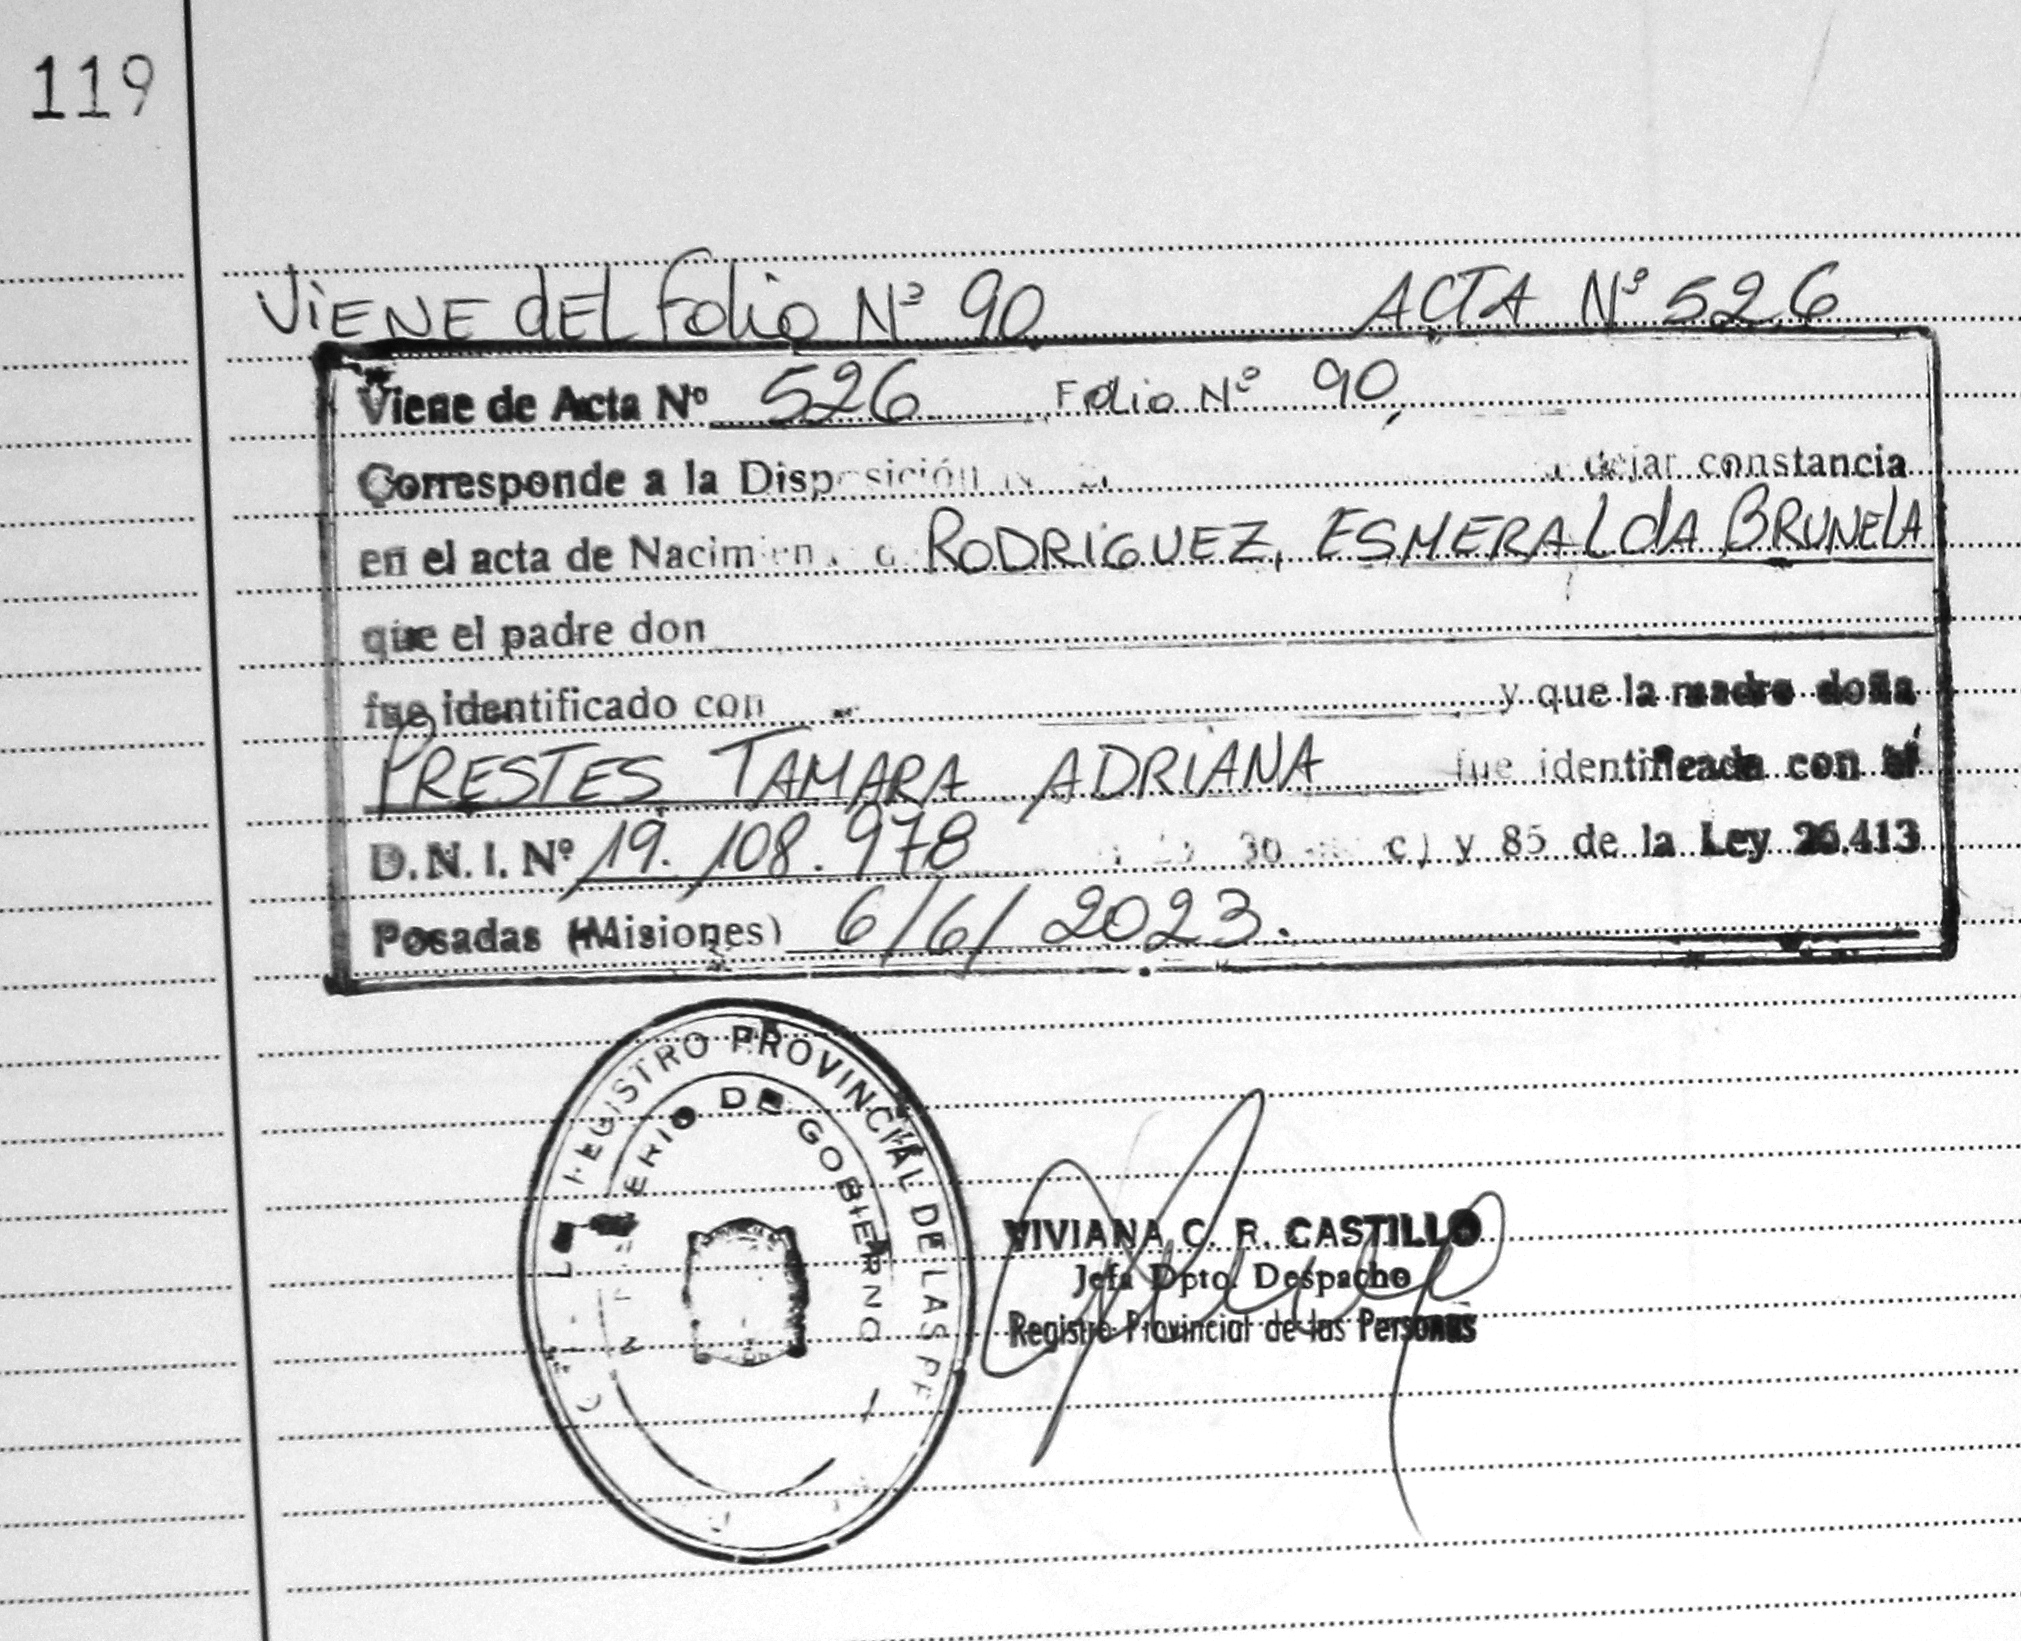 119
ViENE dEL Folio Nº 90 ACTA Nº 526
Viene de Acta Nº 526 Folio Nº 90,
Corresponde a la Disposición dejar constancia
en el acta de RODRIGUEZ, ESMERALdA BRUNELA
que el padre don
fue identificado con y que la madre doña
PRESTES TAMARA ADRIANA fue identificada con el
D.N.I. Nº 19.108.978 30 c) y 85 de la Ley 26.413
Posadas (Misiones) 6/6/2023.
REGISTRO PROVINCIAL DE LAS
DE GOBIERNO
VIVIANA C. R. CASTILLO
Jefa Dpto. Despacho
Registro Provincial de las Personas